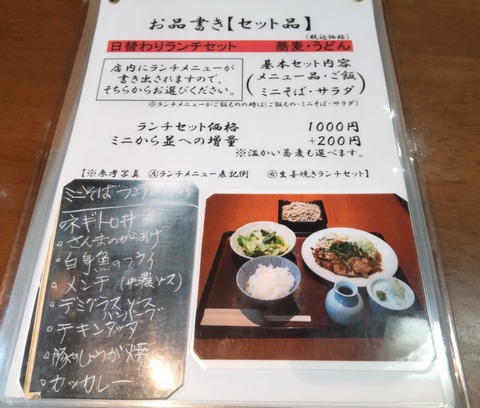 お品書き【セット品】
(税込価格)
日替わりランチセット 蕎麦・うどん
店内にランチメニューが
書き出されますので、
そちらからお選びください。
基本セット内容
(メニュー品・ご飯
ミニそば・サラダ)
※ランチメニューがご飯ものの時は(ご飯もの・ミニそば・サラダ)
ランチセット価格 1000円
ミニから並への増量 +200円
※温かい蕎麦も選べます。
【※参考写真 Ⓐランチメニュー表記例 Ⓑ生姜焼きランチセット】
ミニそば
・ネギトロ丼
・さんまのからあげ
・白身魚のフライ
・メンチ(中濃ソース)
・デミグラスソース
ハンバーグ
・チキンタツタ
・豚のしょうが焼
・カツカレー